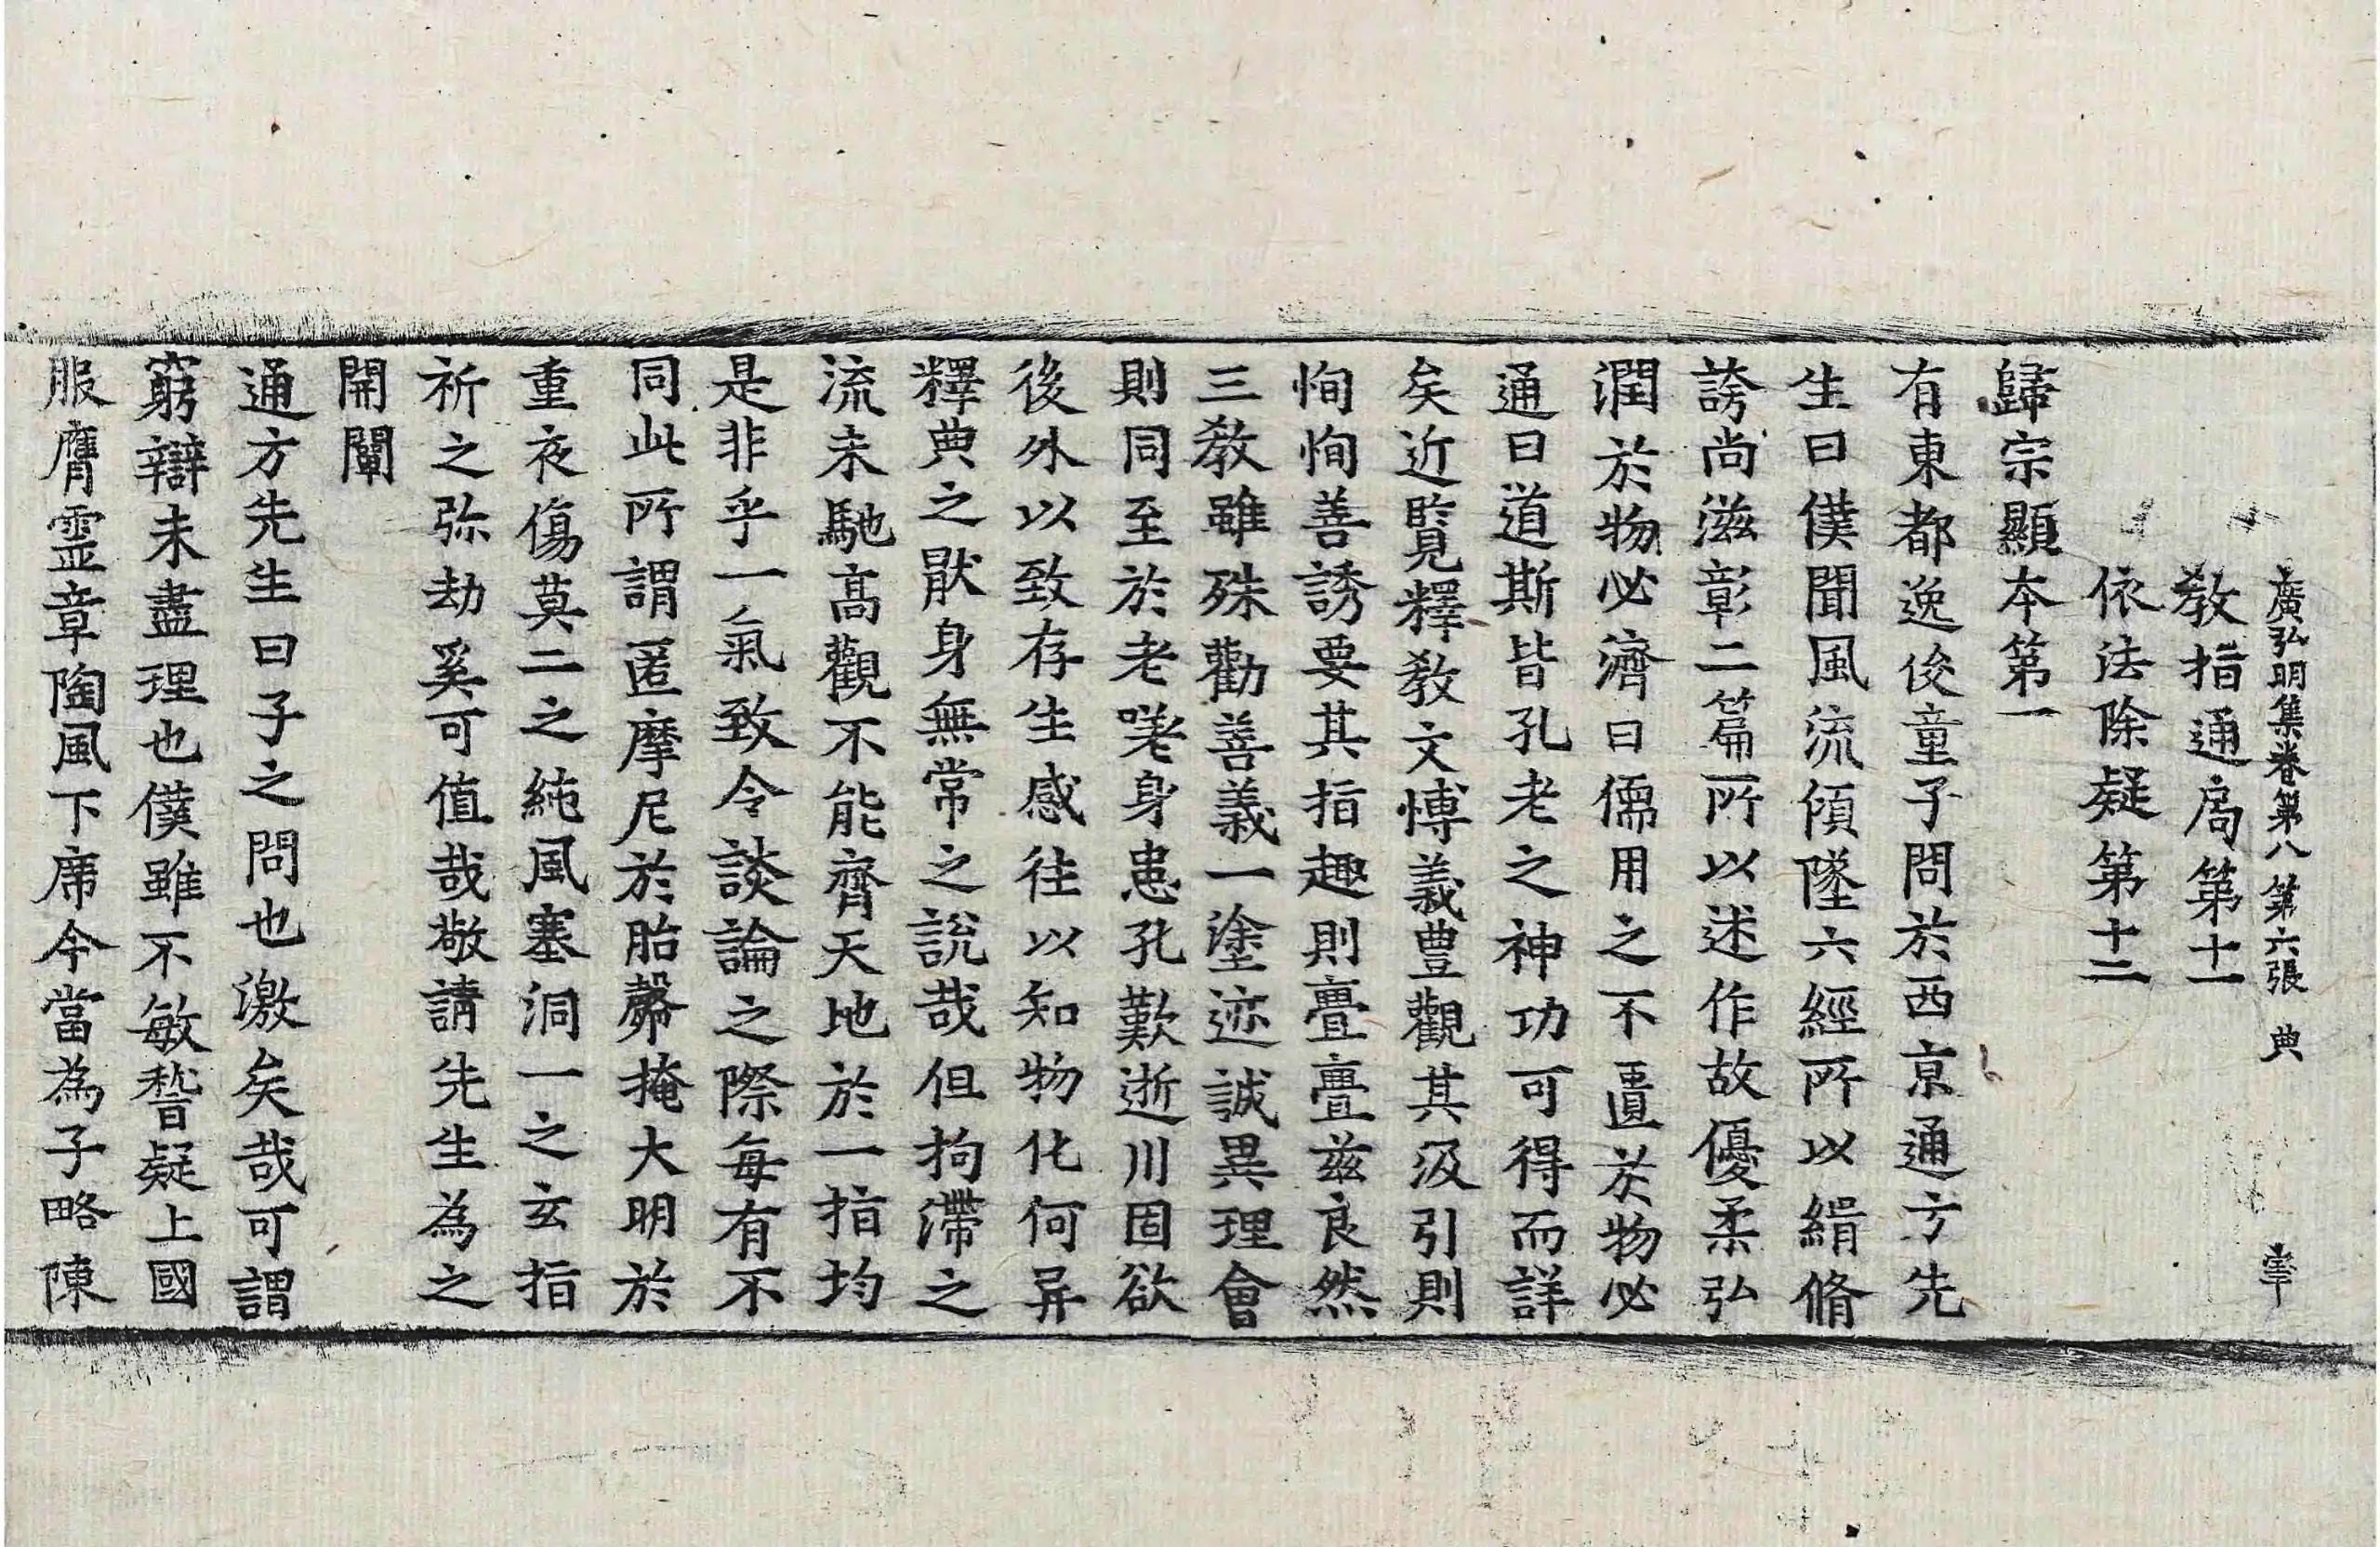 廣弘明集卷第八 第六張 典
教指通局第十一
依法除疑第十二
歸宗顯本第一
有東都逸俊童子問於西京通方先
生曰僕聞風流傾墜六經所以緝脩
誇尚滋彰二篇所以述作故優柔弘
潤於物必濟曰儒用之不匱於物必
通曰道斯皆孔老之神功可得而詳
矣近覧釋教文博義豊觀其汲引則
恂恂善誘要其指趣則亹亹兹良然
三教雖殊勸善義一塗迹誠異理會
則同至於老嗟身患孔歎逝川固欲
後外以致存生感往以知物化何异
釋典之猒身無常之說哉但拘滯之
流未馳高觀不能齊天地於一指均
是非乎一氣致令談論之際每有不
同此所謂匿摩尼於胎㲉掩大明於
重夜傷莫二之純風塞洞一之玄指
祈之弥劫奚可值哉敬請先生為之
開闡
通方先生曰子之問也激矣哉可謂
窮辯未盡理也僕雖不敏稽疑上國
服膺靈章陶風下席今當為子略陳